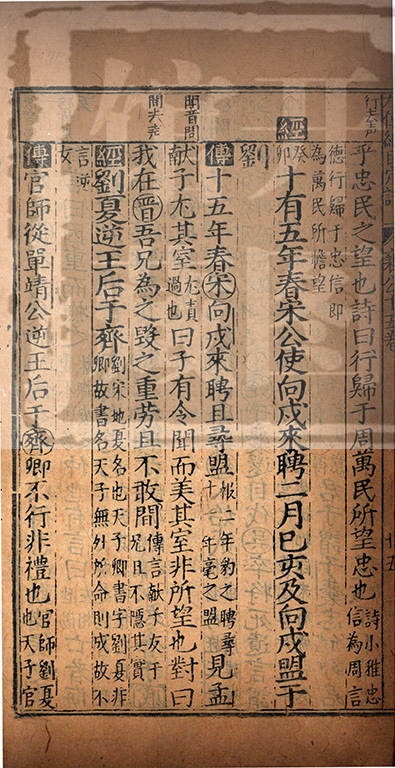 乎忠民之望也詩曰行歸于周萬民所望忠也詩小雅忠信為周言
德行歸于忠信即為萬民所瞻望
經癸卯十有五年春宋公使向戌來聘二月己亥及向戌盟于
劉
傳十五年春宋向戌來聘且尋盟報二年豹之聘尋十一年亳之盟見孟
獻子尤其室尤責過也曰子有令聞而美其室非所望也對曰
我在晉吾兄為之毀之重勞且不敢間傳言獻子友于兄且不隱其實
經劉夏逆王后于齊劉采地夏名也天子卿書字劉夏非卿故書名天子無外所命則成故不
言逆女
傳官師從單靖公逆王后于齊卿不行非禮也官師劉夏也天子官
聞音問
間去聲
行去聲